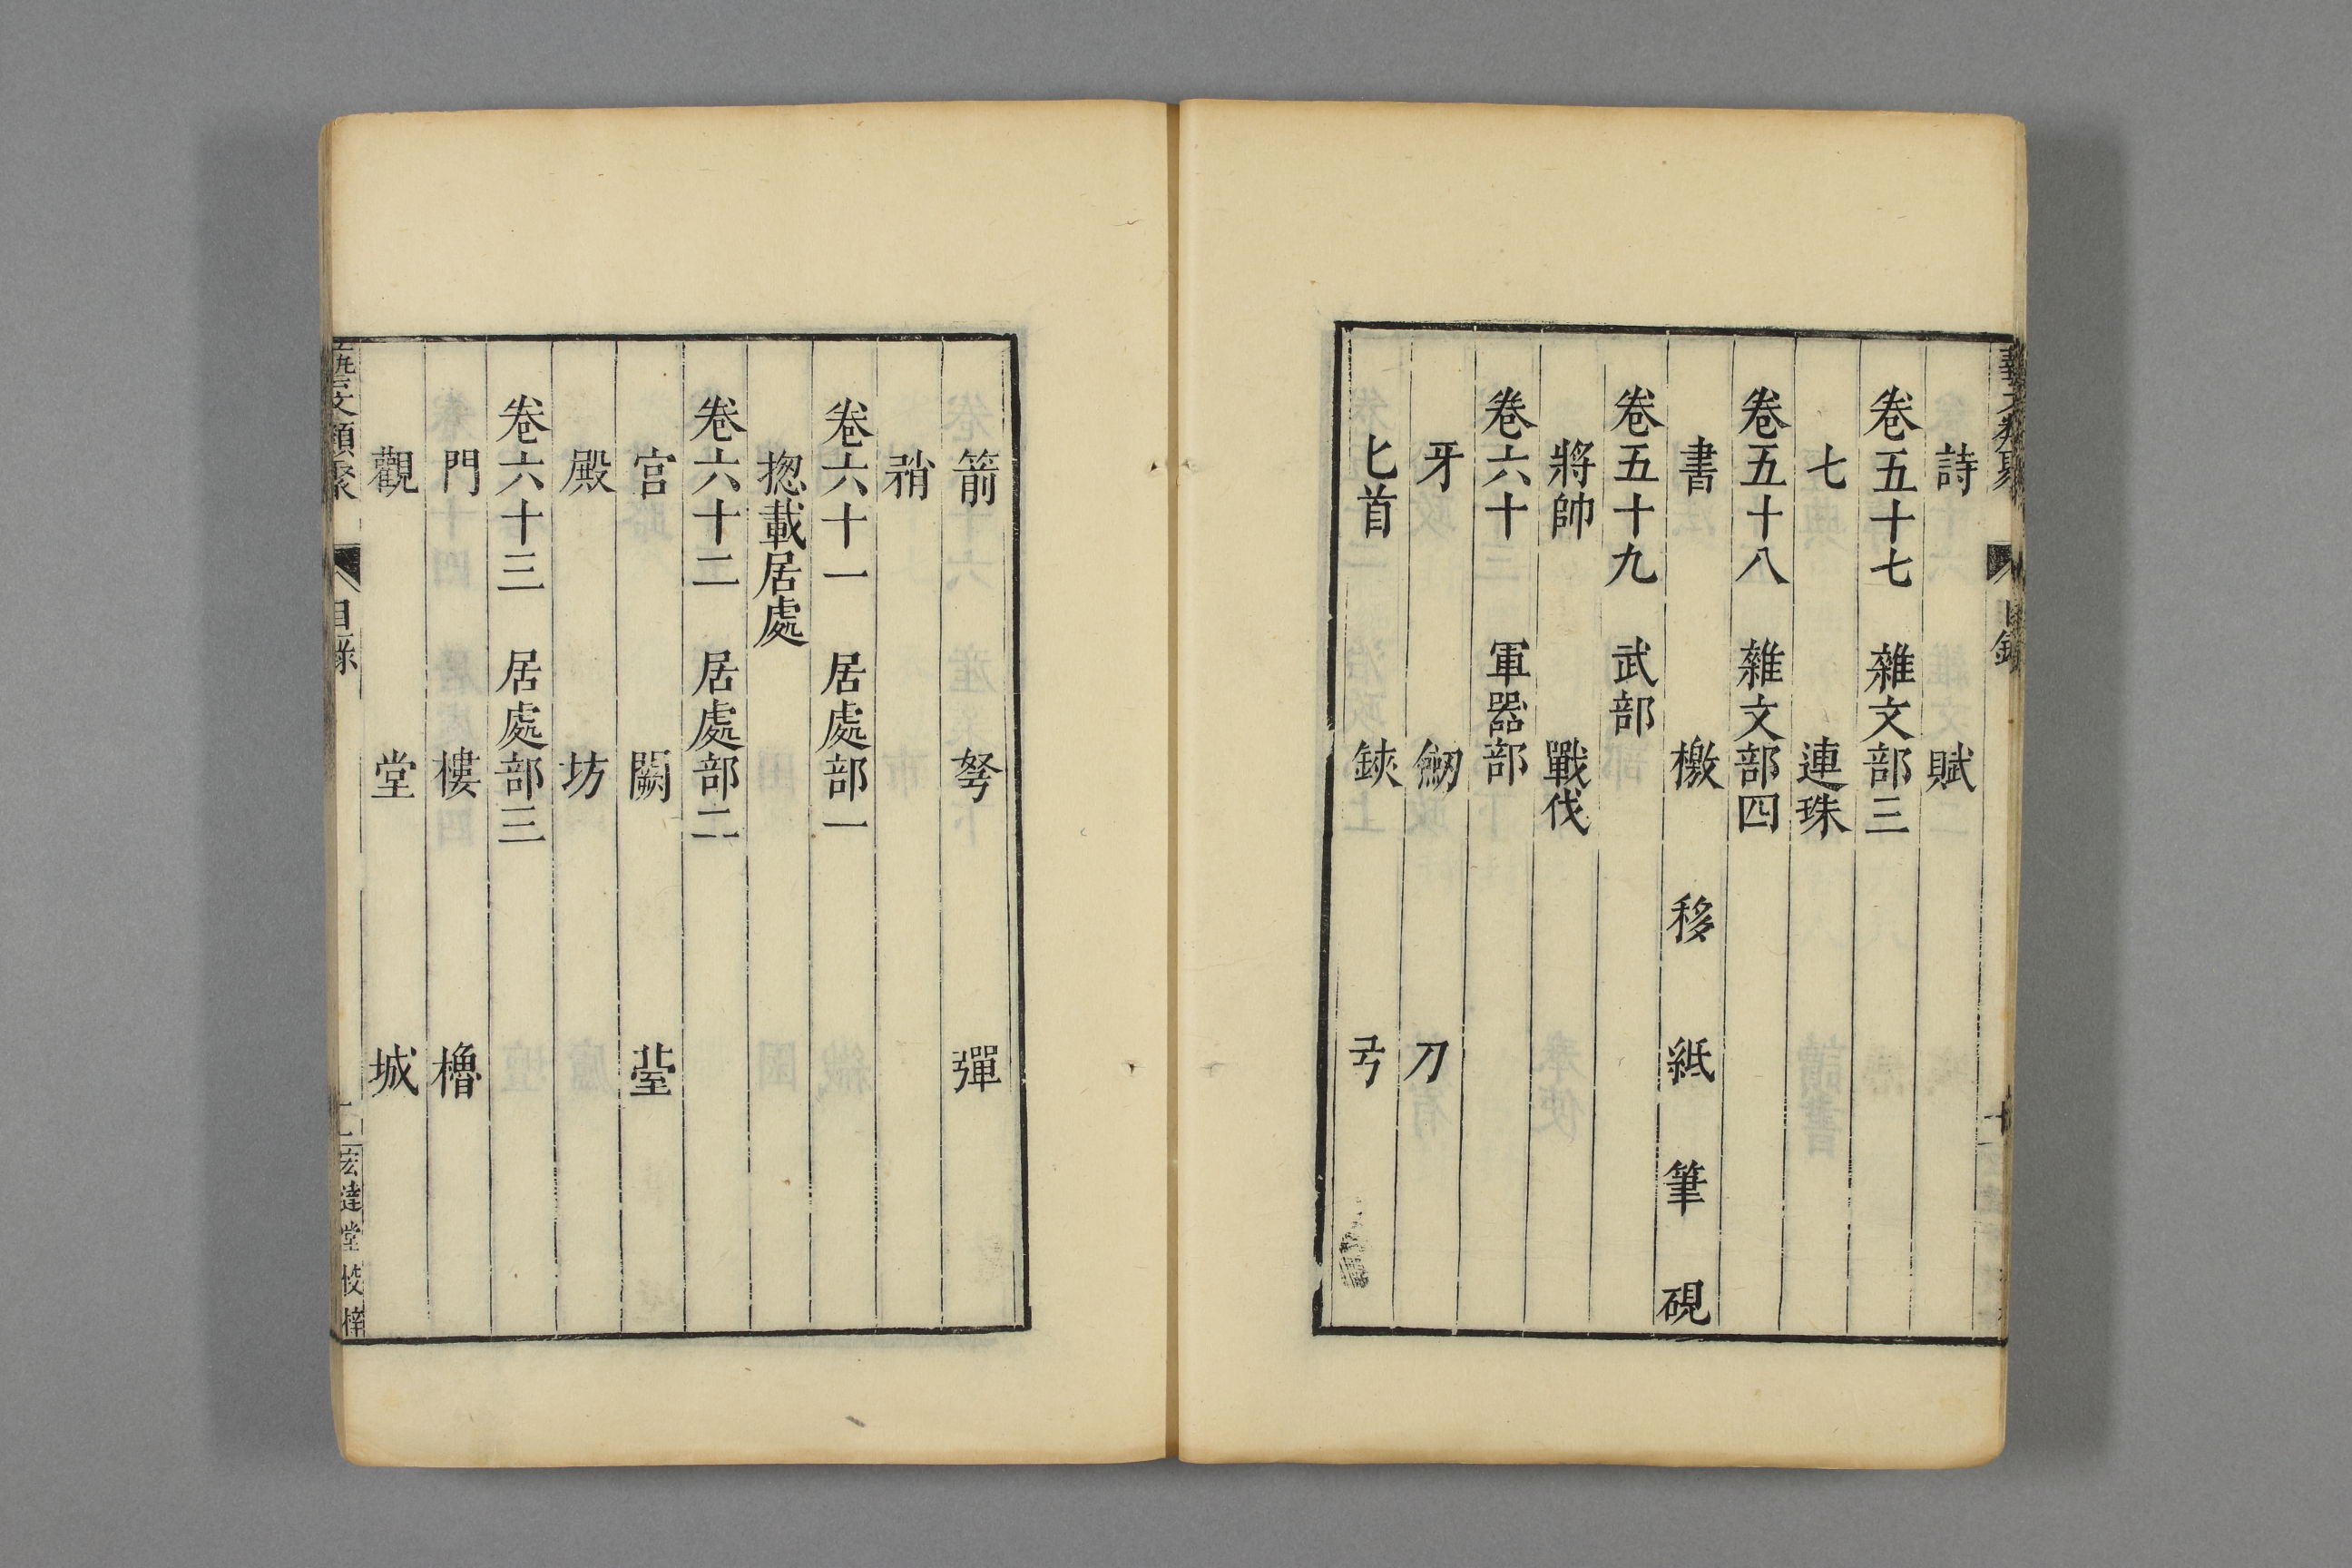 詩 賦
卷五十七 雜文部三
七 連珠
卷五十八 雜文部四
書 檄 移 紙 筆 硯
卷五十九 武部
將帥 戰伐
卷六十 軍器部
牙 劒 刀
匕首 鋏 弓
箭 弩 彈
矟
卷六十一 居處部一
揔載居處
卷六十二 居處部二
宫 闕 臺
殿 坊
卷六十三 居處部三
門 樓 櫓
觀 堂 城
文類聚 目錄